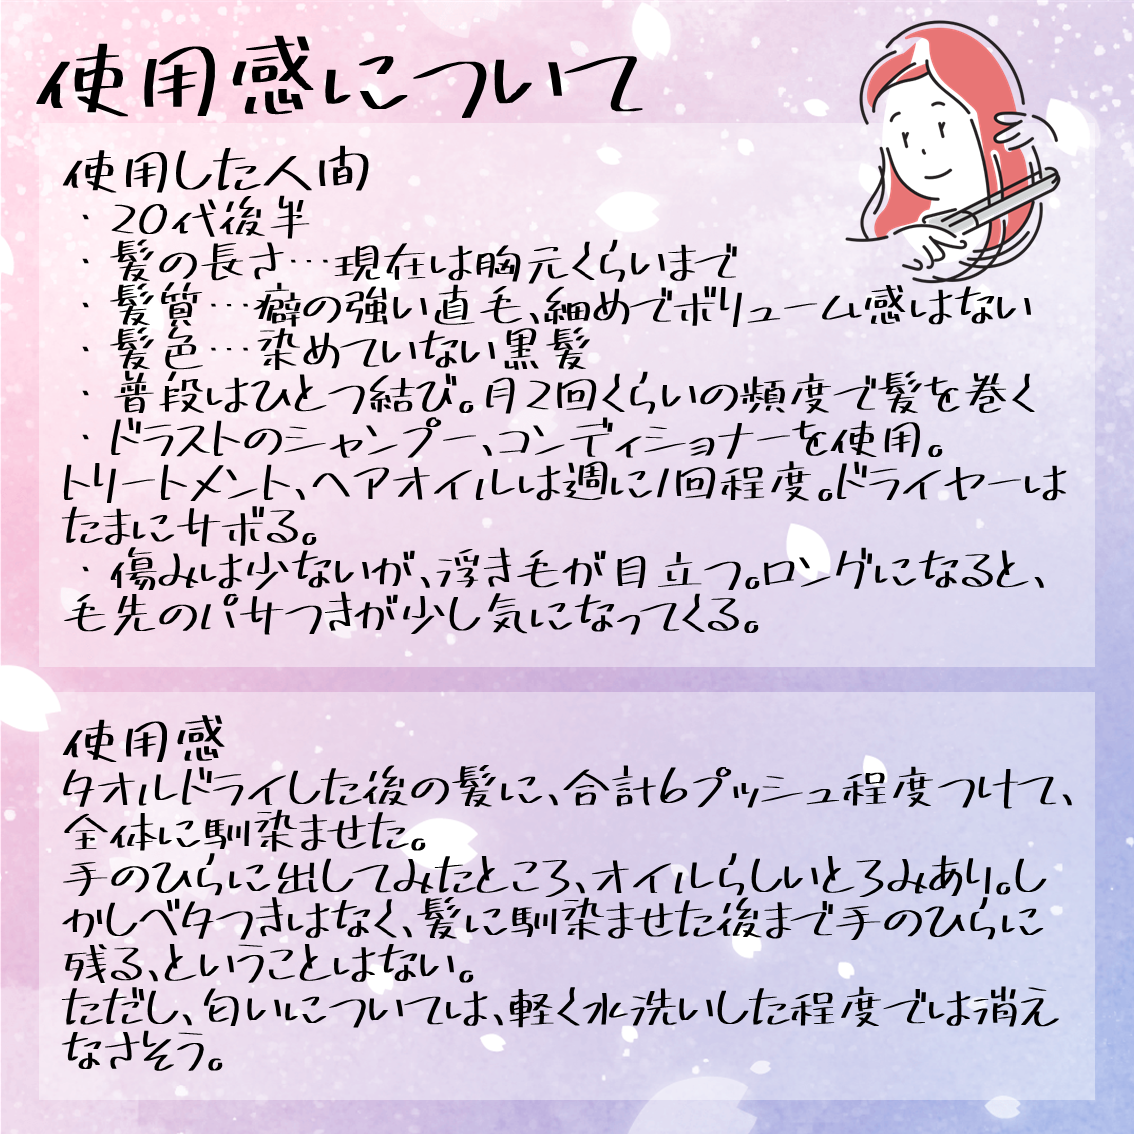 使用感について
使用した人間
・20代後半
・髪の長さ…現在は胸元くらいまで
・髪質…癖の強い直毛、細めでボリューム感はない
・髪色…染めていない黒髪
・普段はひとつ結び。月2回くらいの頻度で髪を巻く
・ドラストのシャンプー、コンディショナーを使用。
トリートメント、ヘアオイルは週に1回程度。ドライヤーは
たまにサボる。
・傷みは少ないが、浮き毛が目立つ。ロングになると、
毛先のパサつきが少し気になってくる。
使用感
タオルドライした後の髪に、合計6プッシュ程度つけて、
全体に馴染ませた。
手のひらに出してみたところ、オイルらしいとろみあり。し
かしベタつきはなく、髪に馴染ませた後まで手のひらに
残る、ということはない。
ただし、匂いについては、軽く水洗いした程度では消え
なさそう。